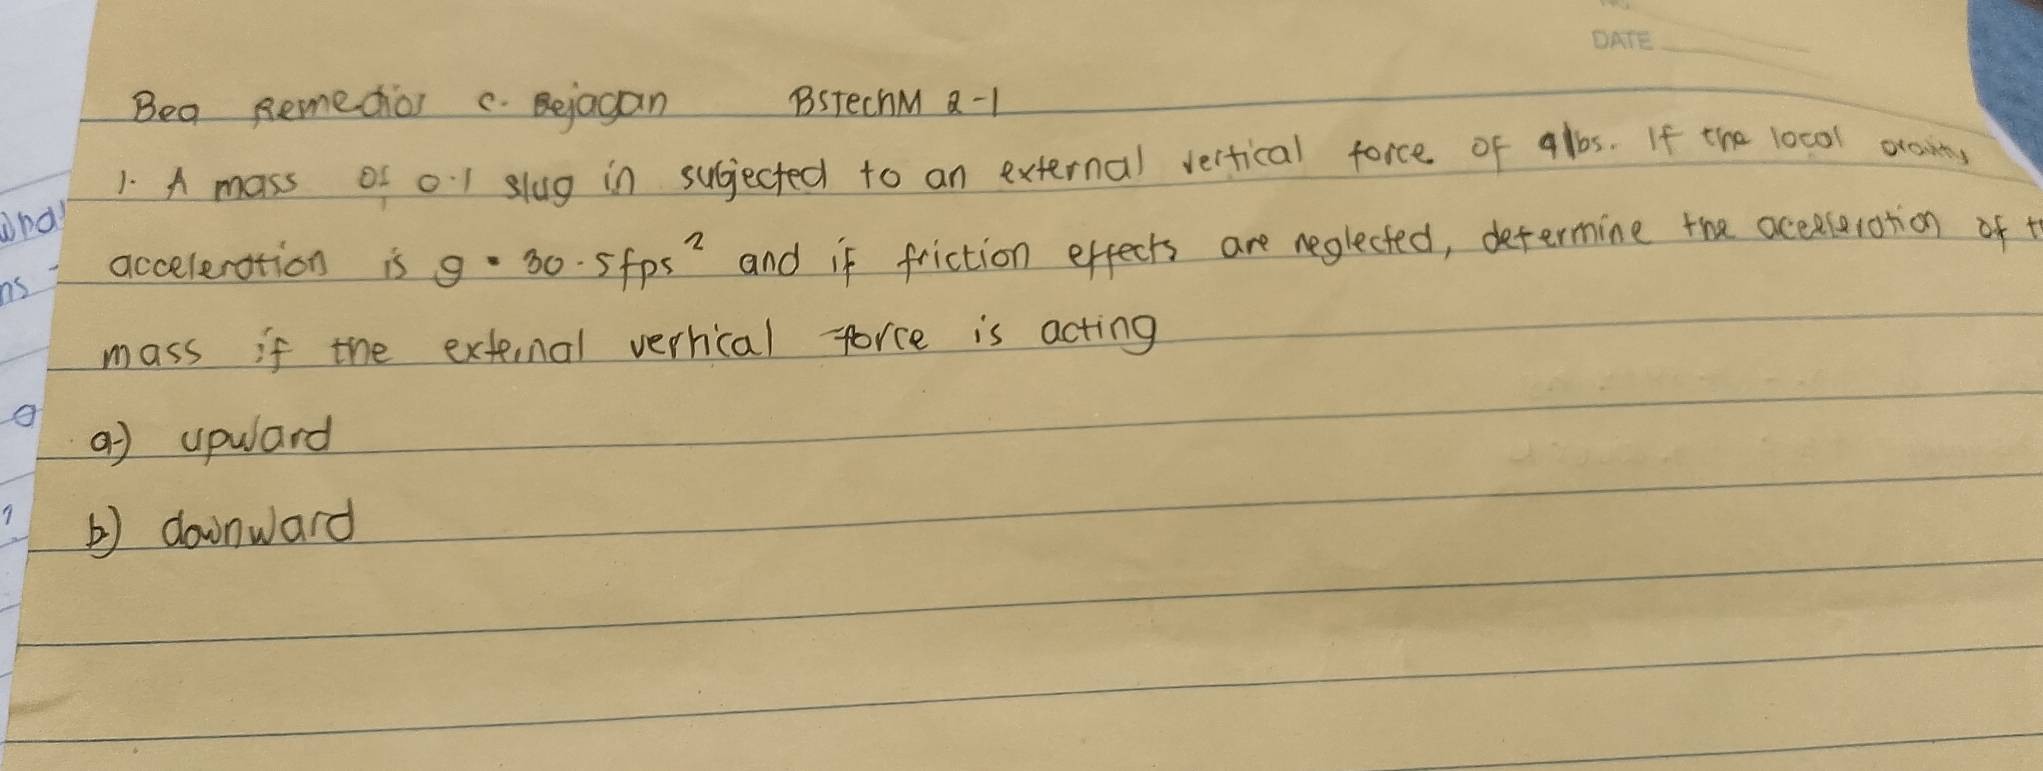 DATE
Bea Remedios C. Bejagan BSTechM 2-1
1. A mass of 0.1 slug in subjected to an external vertical force of 9lbs. If the local gravity
acceleration is g = 30.5fps² and if friction effects are neglected, determine the acceleration of
mass if the external vertical force is acting
a) upward
b) downward